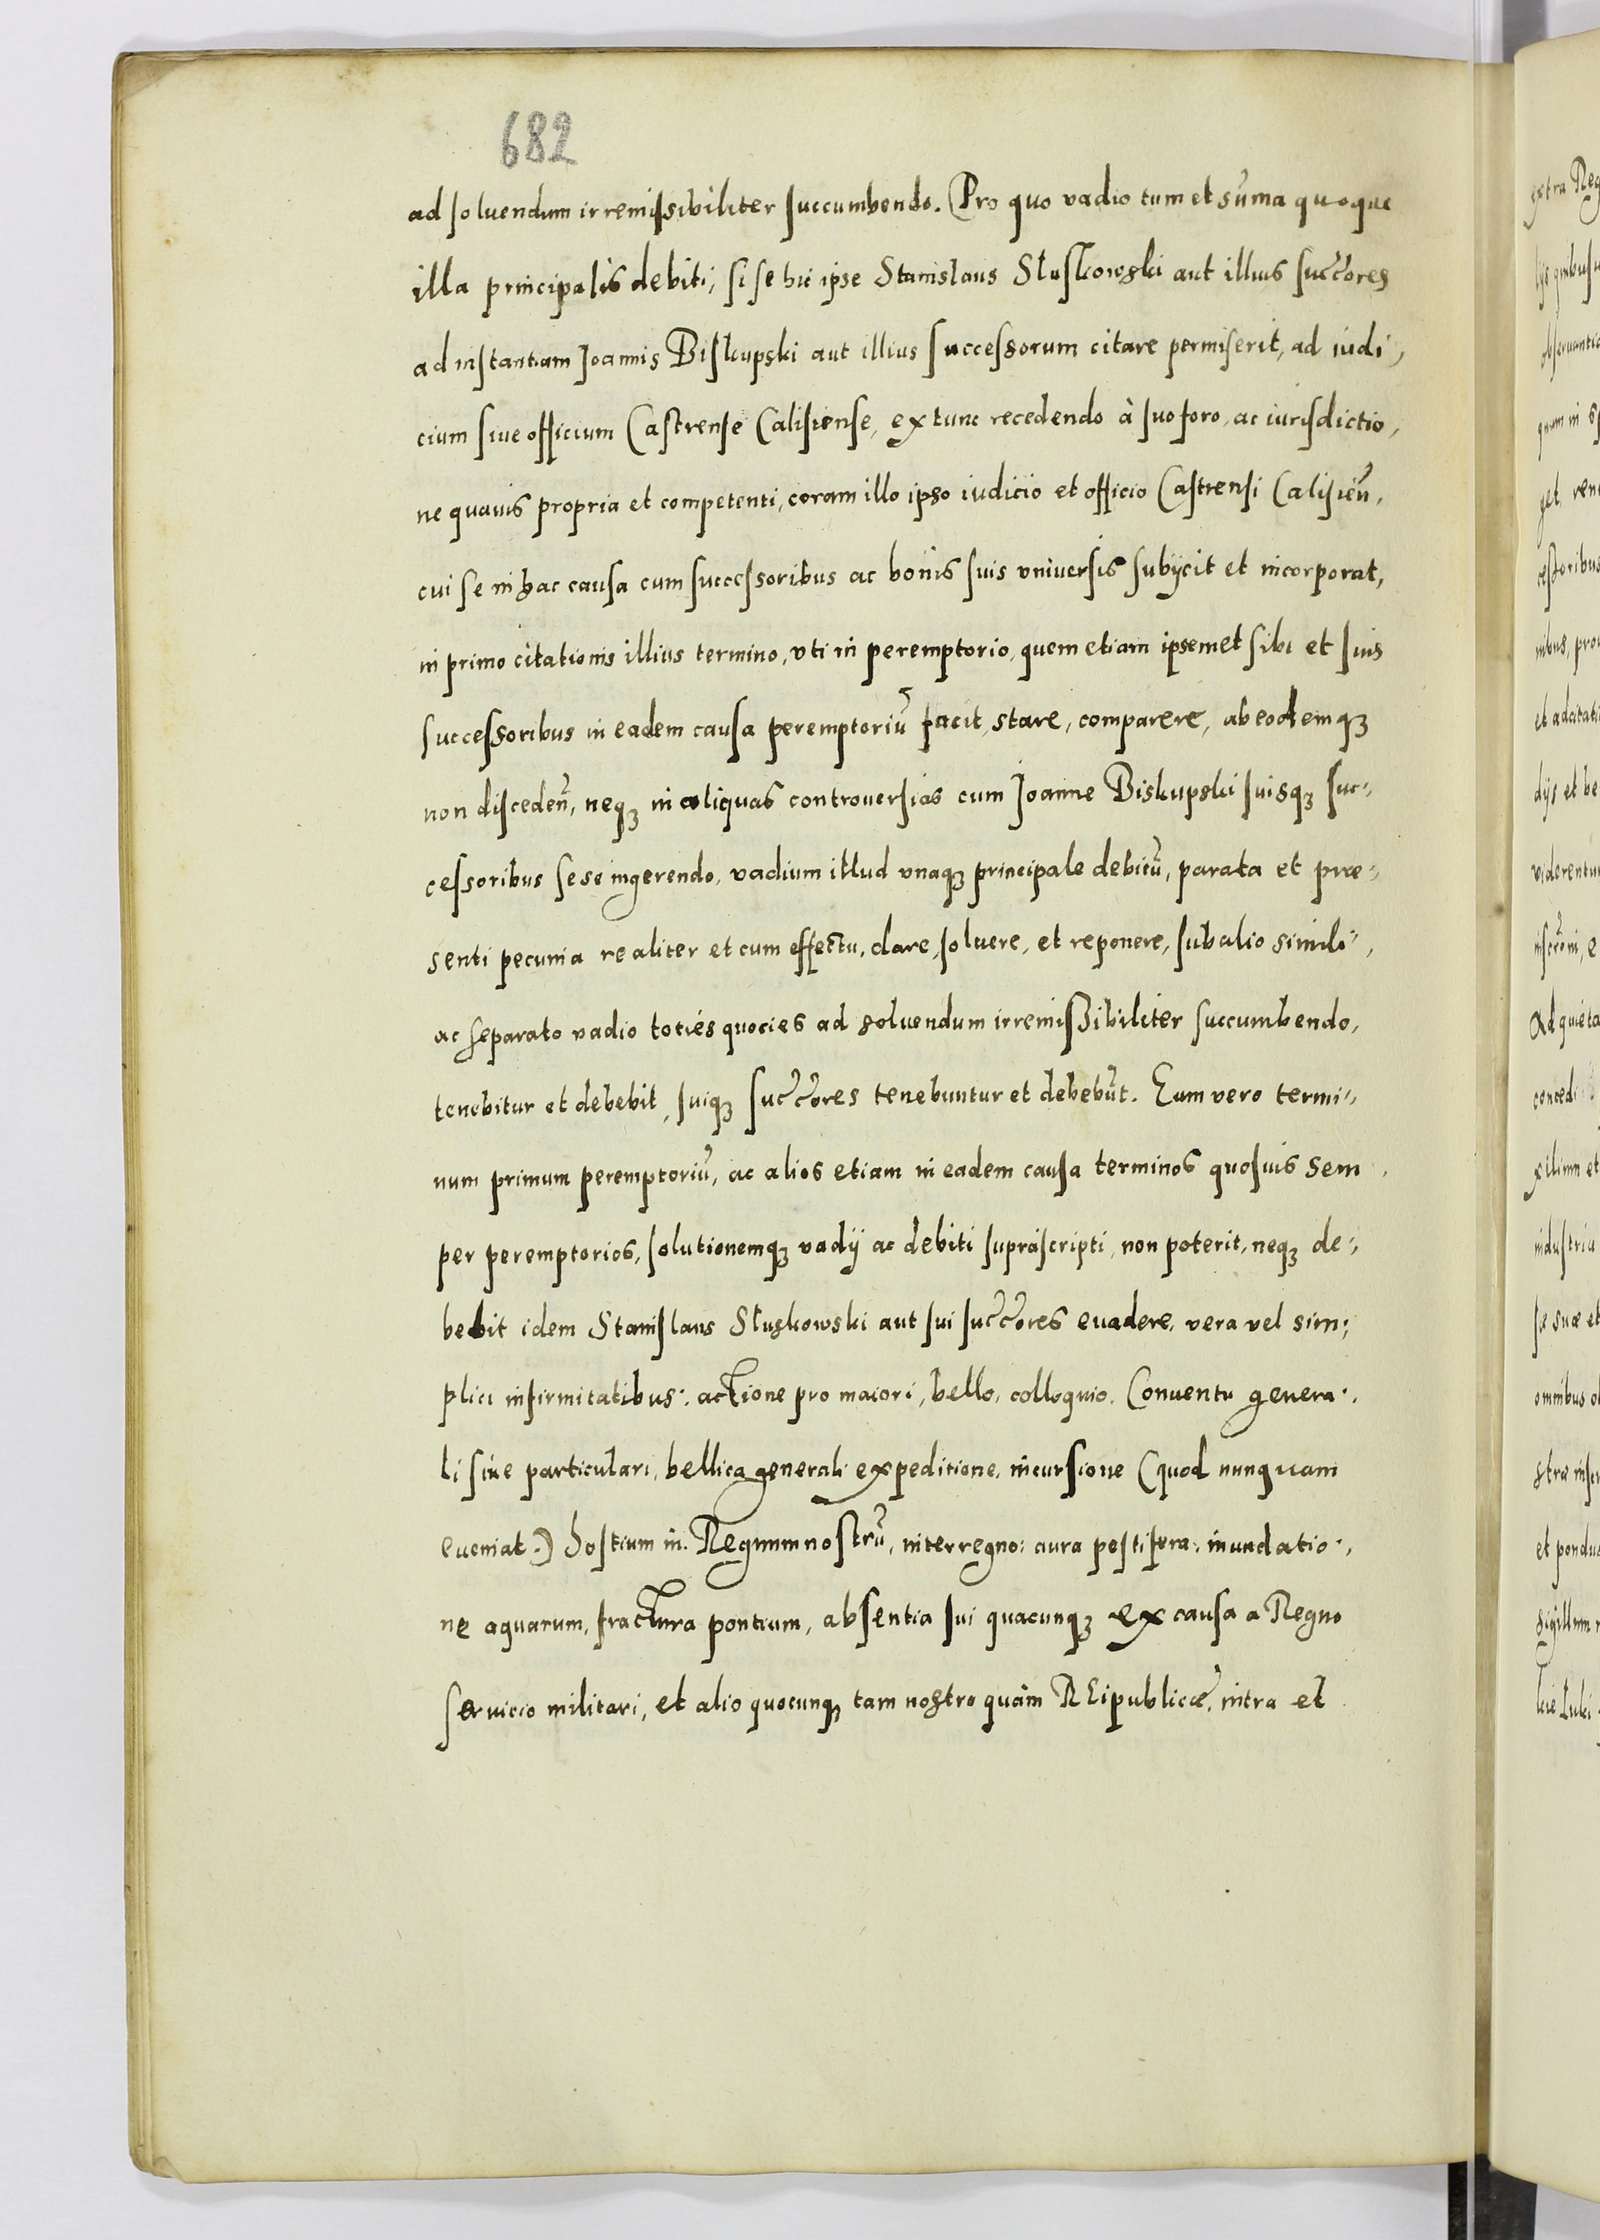 682
ad soluendum irremissibiliter succumbendo. Pro quo vadio tum et sum̃a quoque
illa principalis debiti, si se hic ipse Stanislaus Sluskowski aut illius succ̃ores
ad instantiam Joannis Biskupski aut illius successorum citare permiserit, ad iudi-,
cium siue officium Castrense Calisiense, ex tunc recedendo à suo foro, ac iurisdictio,
ne quauis propria et competenti, coram illo ipso iudicio et officio Castrensi Calisieñ,
cui se in hac causa cum successoribus ac bonis suis vniuersis subijcit et incorporat,
in primo citationis illius termino, vti in peremptorio, quem etiam ipsemet sibi et suis
successoribus in eadem causa peremptoriũ facit, stare, comparere, ab eodemqꝫ
non disceden̄, neqꝫ in aliquas controuersias cum Joanne Biskupski suisqꝫ suc-,
cessoribus sese ingerendo, vadium illud vnaqꝫ principale debitũ, parata et præ-,
senti pecunia realiter et cum effectu, dare, soluere, et reponere, sub alio simili,
ac separato vadio toties quocies ad soluendum irremissibiliter succumbendo,
tenebitur et debebit, suiqꝫ succ̃ores tenebuntur et debebũt. Eum vero termi-,
num primum peremptoriũ, ac alios etiam in eadem causa terminos quosuis sem
per peremptorios, solutionemqꝫ vadij ac debiti suprascripti, non poterit, neqꝫ de-,
bebit idem Stanislaus Sluskowski aut sui succ̃ores euadere, vera vel sim-,
plici infirmitatibus: actione pro maiori, bello, colloquio. Conuentu genera-,
li siue particulari, bellica generali expeditione, incursione (quod nunquam
eueniat.) hostium in Regnum nostrũ, interregno: aura pestifera: inundatio-,
ne aquarum, fractura pontium, absentia sui quacunqꝫ ex causa a Regno
seruicio militari, et alio quocunqꝫ tam nostro quàm REipublicæ, intra et